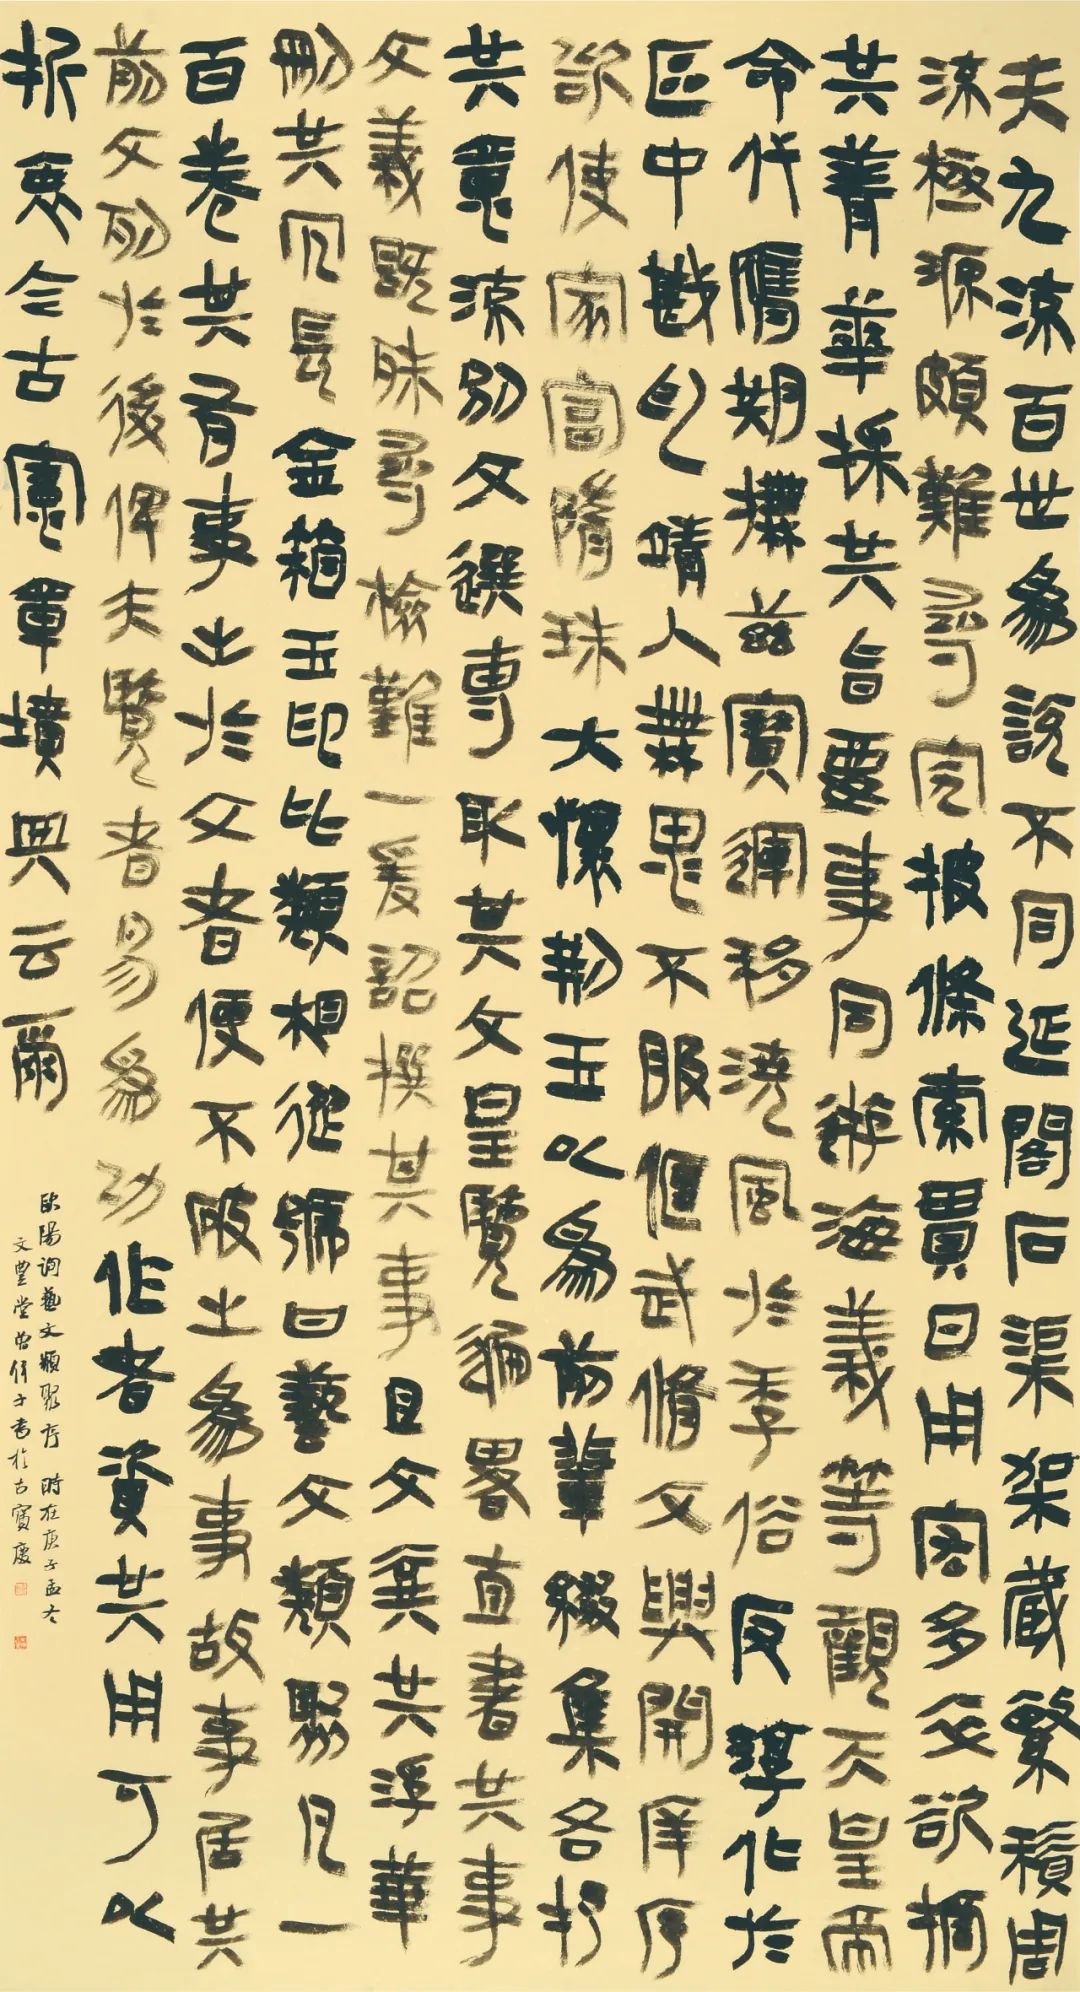 夫九流百世為說不同延閣石渠架藏繁積周
流極源頗難尋究披條索貫日用多卒欲摘
其菁華採其旨要事同遊海義等觀天皇帝
命代膺期撫茲寶運移澆風於季俗反淳化於
區中戡亂靖人無思不服偃武脩文興開庠序
欲使家富隋珠大懷荊玉以為前輩綴集各杼
其意流別文選專取其文皇覽徧略直書其事
文義既殊尋檢難一爰詔撰其事且文棄其浮華
刪其冗長金箱玉印比類相從號曰藝文類聚凡一
百卷其有事出於文者便不破之為事故事居其
前文列於後俾夫覽者易為功作者資其用可以
折衷今古憲章墳典云爾
歐陽詢藝文類聚序 時在庚子孟冬
文豐堂曾子書於古寶慶